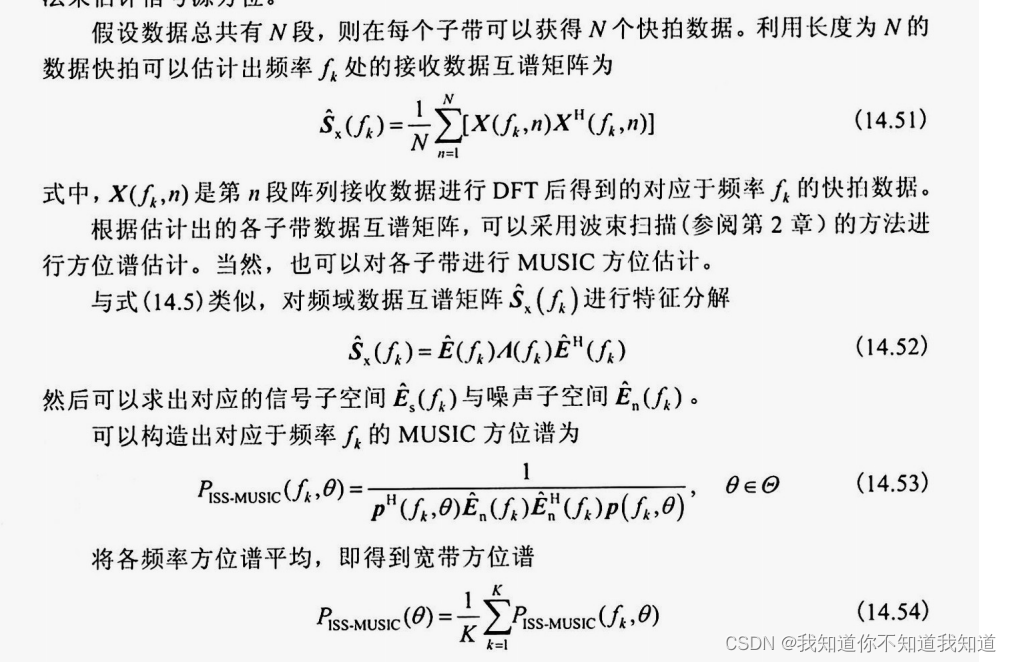 法来估计信号源方位。
假设数据总共有 N 段，则在每个子带可以获得 N 个快拍数据。利用长度为 N 的
数据快拍可以估计出频率 fₖ 处的接收数据互谱矩阵为
Ŝₓ(fₖ)=1/N ∑ₙ₌₁ᴺ[X(fₖ,n)Xᴴ(fₖ,n)] (14.51)
式中，X(fₖ,n)是第 n 段阵列接收数据进行 DFT 后得到的对应于频率 fₖ 的快拍数据。
根据估计出的各子带数据互谱矩阵，可以采用波束扫描(参阅第 2 章)的方法进
行方位谱估计。当然，也可以对各子带进行 MUSIC 方位估计。
与式(14.5)类似，对频域数据互谱矩阵 Ŝₓ(fₖ)进行特征分解
Ŝₓ(fₖ)=Ê(fₖ)Λ(fₖ)Êᴴ(fₖ) (14.52)
然后可以求出对应的信号子空间 Êₛ(fₖ)与噪声子空间 Êₙ(fₖ)。
可以构造出对应于频率 fₖ 的 MUSIC 方位谱为
P_ISS-MUSIC(fₖ,θ)=1/(pᴴ(fₖ,θ)Êₙ(fₖ)Êₙᴴ(fₖ)p(fₖ,θ)), θ∈Θ (14.53)
将各频率方位谱平均，即得到宽带方位谱
P_ISS-MUSIC(θ)=1/K ∑ₖ₌₁ᴷ P_ISS-MUSIC(fₖ,θ) (14.54)
CSDN @我知道你不知道我知道